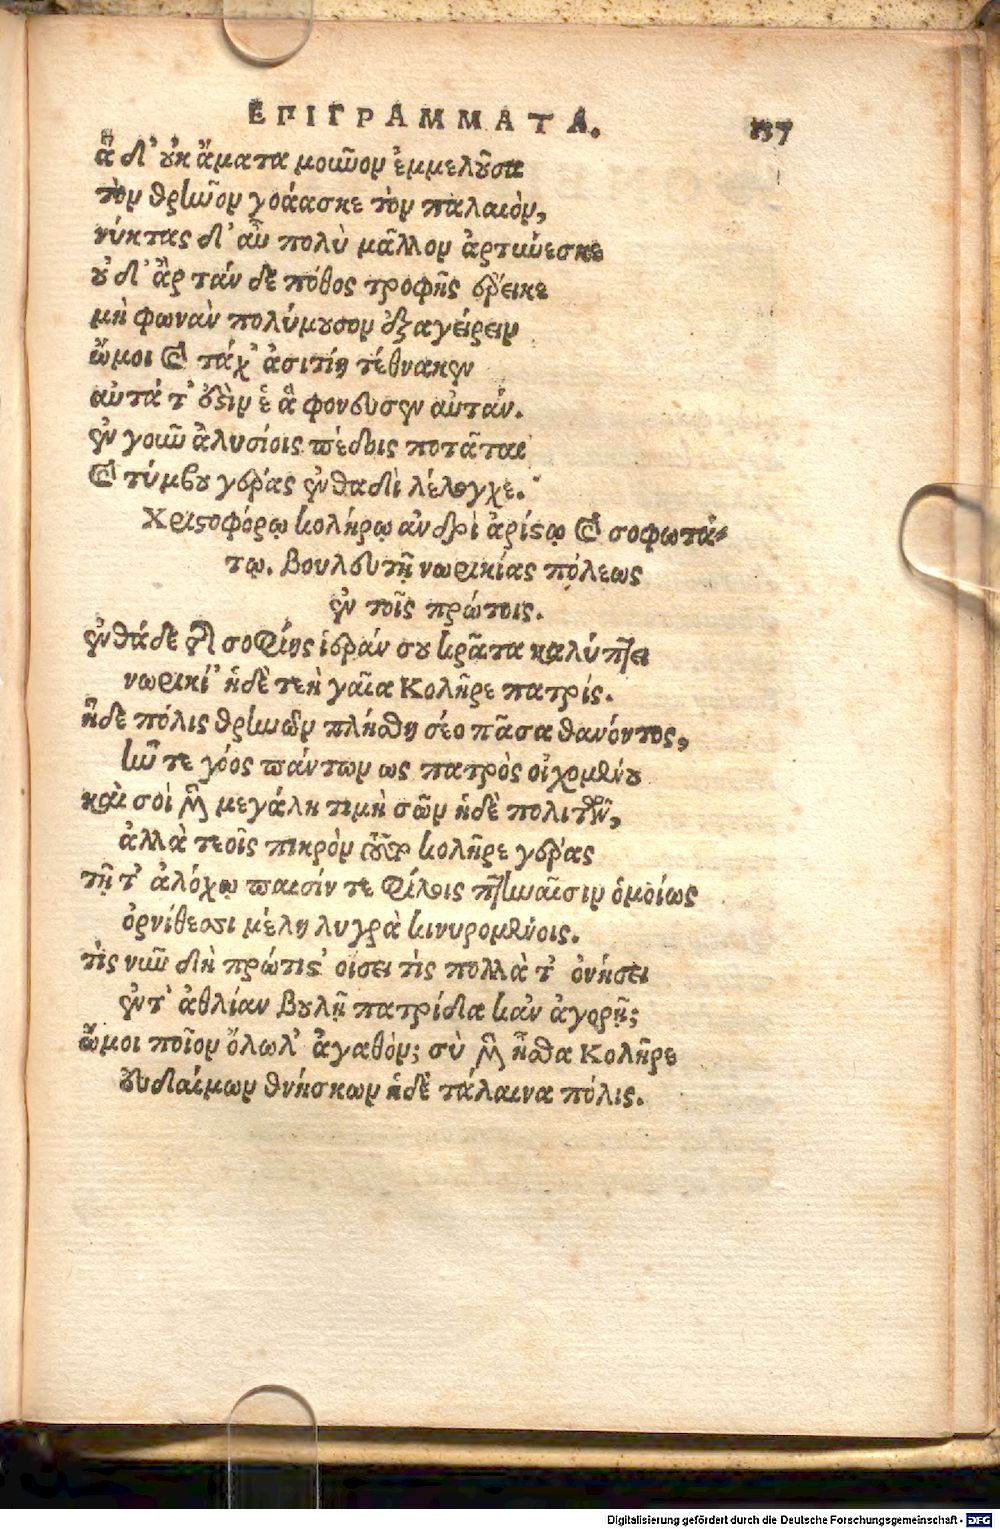 ΕΠΙΓΡΑΜΜΑΤΑ. 137
ἃ δ' οὐκ ἄματα μοῦνον ἐμμελοῦσα
τὸν θρῆνον γοάασκε τὸν παλαιὸν,
νύκτας δ' αὖ πολὺ μᾶλλον ἀρτύεσκε
οὐδ' ἂρ τάν δε πόθος τροφῆς ἔρεικε
μὴ φωνὰν πολύμουσον ἐξαγείρειν
ὤμοι καὶ τάχ' ἀσιτίη τέθνακεν
αὐτά τ' ἔξιν ἑ ἃ φονευσεν αὐτάν.
ἐν γοῦν ἀλυσίοις πέδοις ποτᾶται
καὶ τύμβου γέρας ἐνθαδὶ λέλογχε.
Χριστοφόρῳ κολήρῳ ἀνδρὶ ἀρίστῳ καὶ σοφωτά-
τῳ. βουλευτῇ νωρικίας πόλεως
ἐν τοῖς πρώτοις.
ἐνθάδε τῆς σοφίης ἱεράν σου κρᾶτα καλύπτει
νωρικί' ἠδὲ τεὴ γαῖα Κολῆρε πατρίς.
ἥδε πόλις θρήνων πλήσθη σέο πᾶσα θανόντος,
ἦν τε γόος πάντων ως πατρὸς οἰχομένου
καὶ σοὶ μὲν μεγάλη τιμὴ σῶν ἠδὲ πολιτῶν,
ἀλλὰ τεοῖς πικρὸν οὗτος κολῆρε γέρας
τῇ τ' ἀλόχῳ παισίν τε φίλοις πτηναῖσιν ὁμοίως
ὀρνίθεσσι μέλη λυγρὰ κινυρομένοις.
τίς νῦν δὴ πρώτιστ' οἴσει τὶς πολλὰ τ' ὀνήσει
ἐντ' ἀθλίαν βουλῇ πατρίδα κἀν ἀγορῇς;
ὤμοι ποῖον ὄλωλ' ἀγαθὸν; σὺ μὲν ἦσθα Κολῆρε
εὐδαίμων θνήσκων ἠδὲ τάλαινα πόλις.
Digitalisierung gefördert durch die Deutsche Forschungsgemeinschaft - DFG